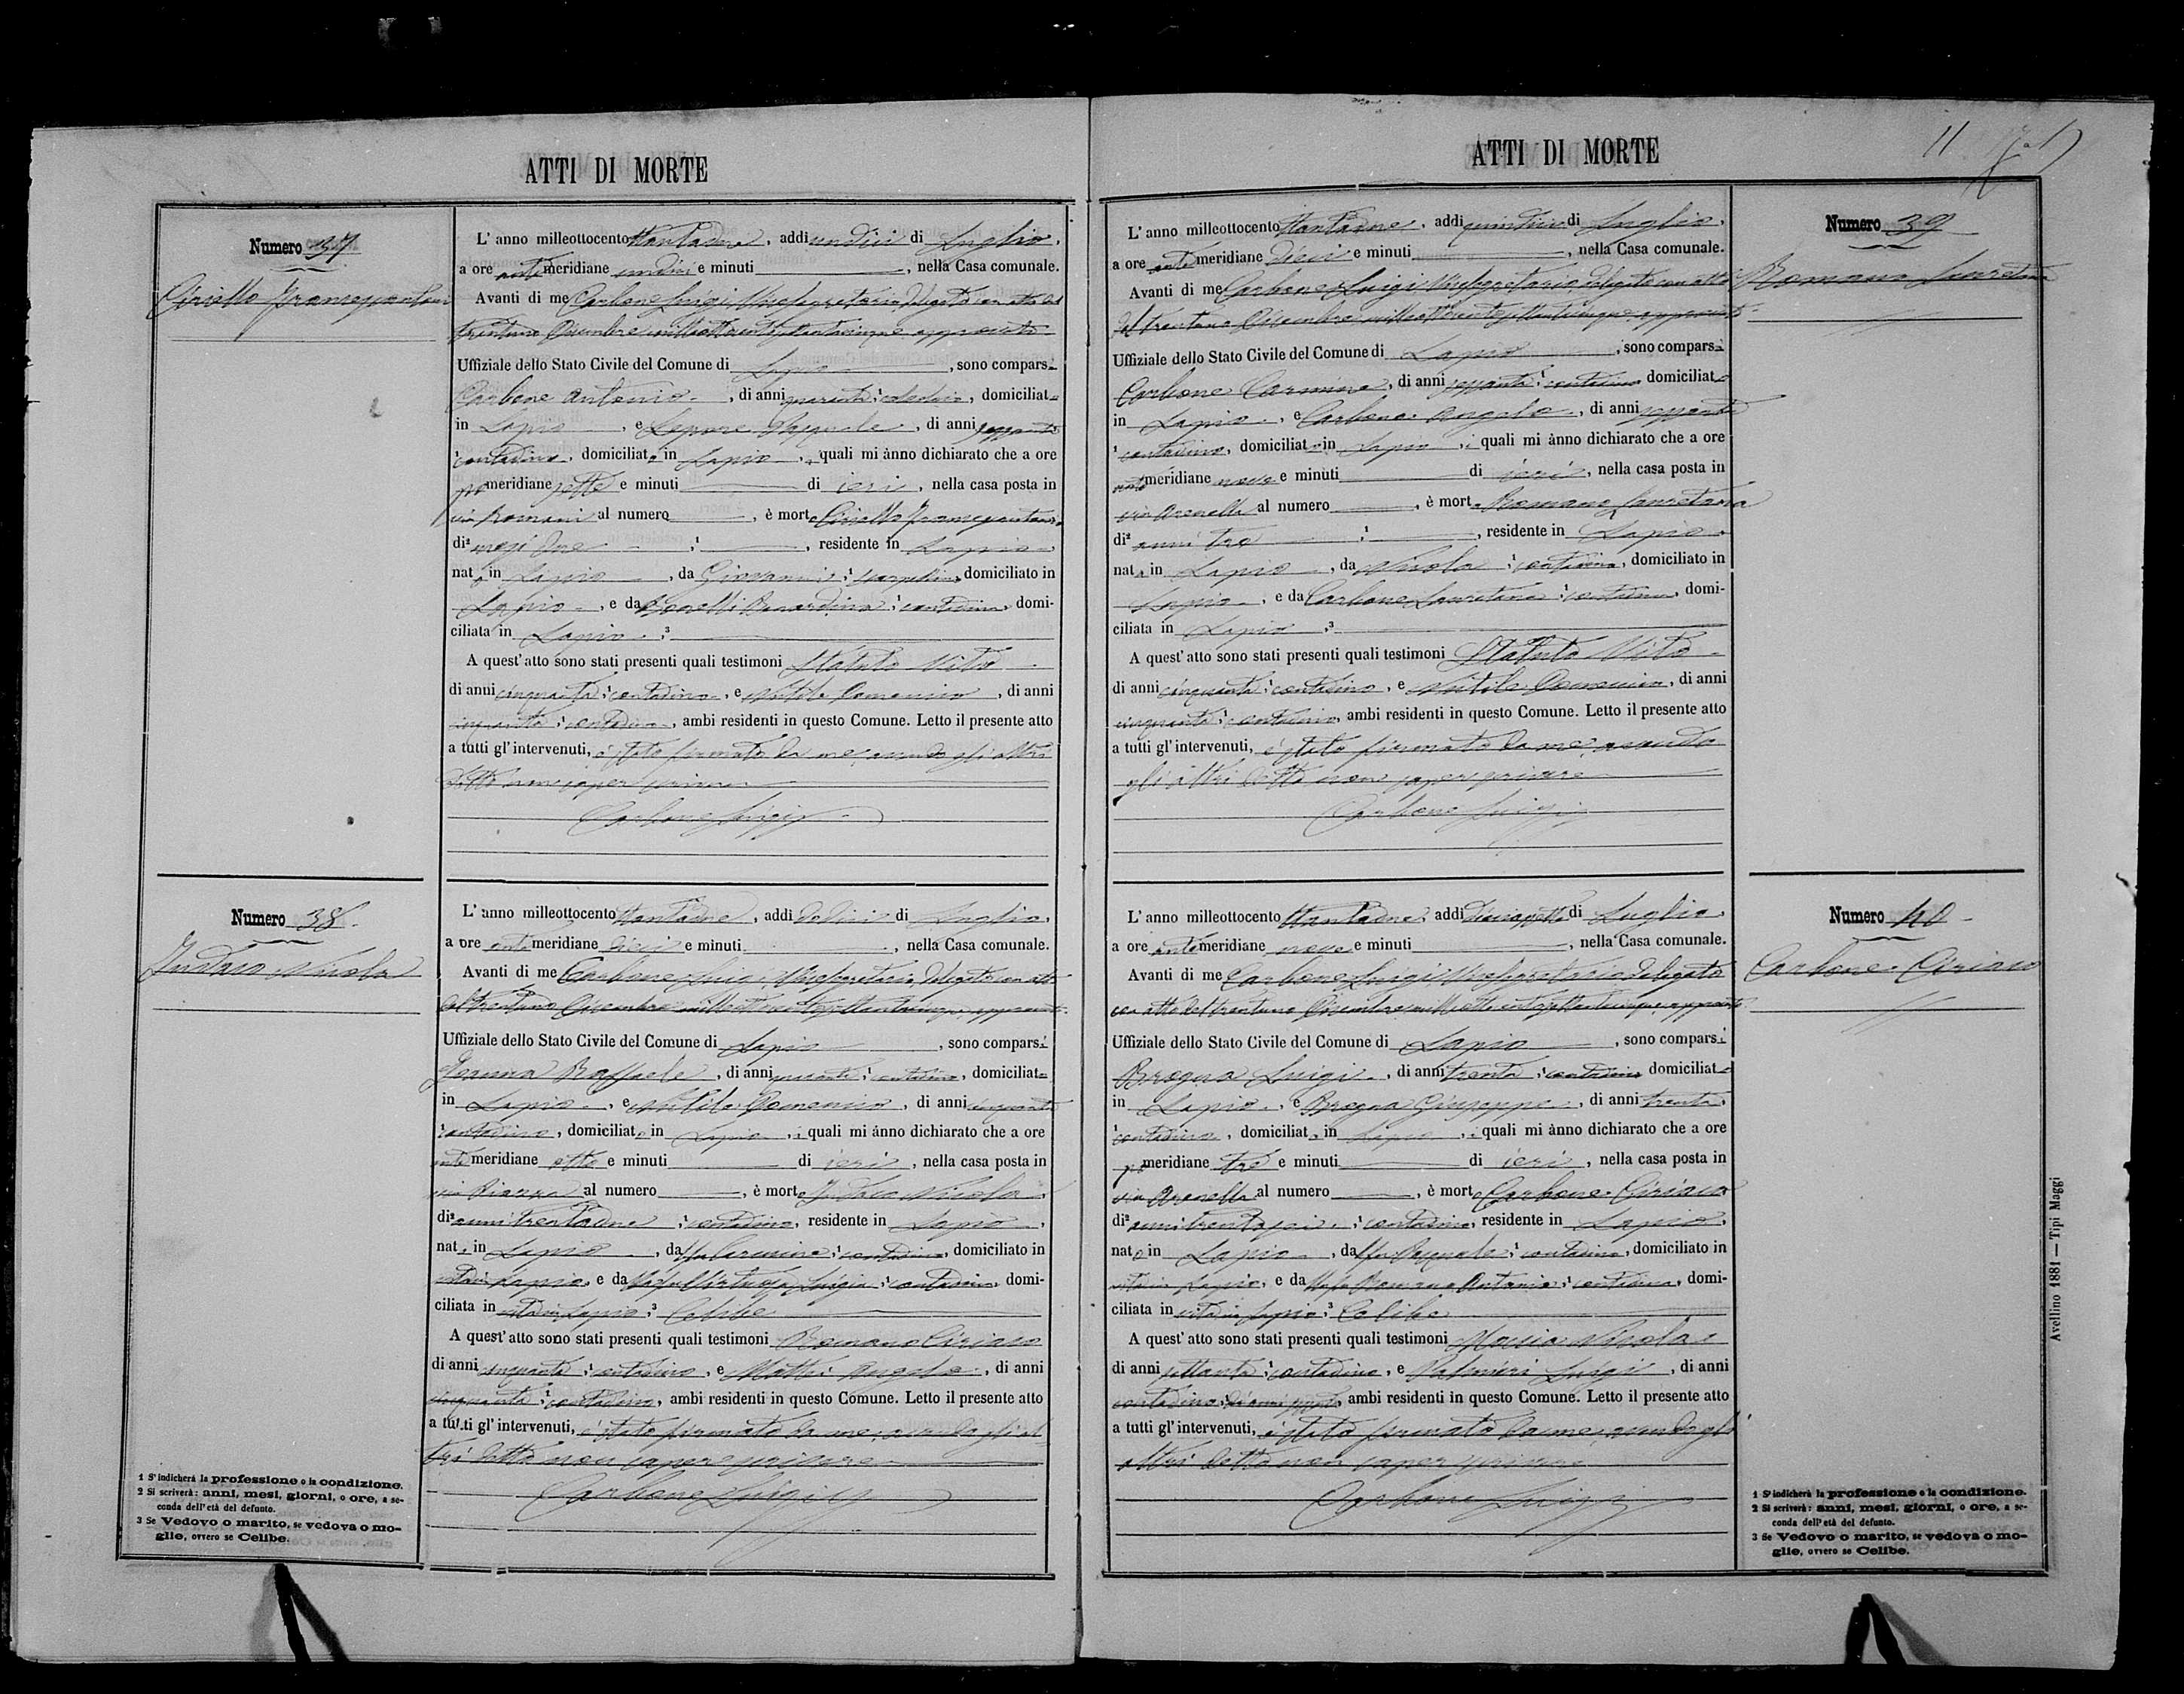 ATTI DI MORTE
Numero 37
Ciriello Francescantonio
L' anno milleottocento ottantadue, addi undici di Luglio,
a ore antimeridiane undici e minuti , nella Casa comunale.
Avanti di me Carbone Luigi Vicesegretario delegato con atto del
trentuno Dicembre milleottocentosettantacinque approvato
Uffiziale dello Stato Civile del Comune di Lapio, sono comparsi
Carbone Antonio, di anni quaranta, domiciliato
in Lapio, e Lepore Pasquale, di anni sessanta
contadino, domiciliato in Lapio, i quali mi ànno dichiarato che a ore
pomeridiane sette e minuti di ieri, nella casa posta in
via Romani al numero , è morto Ciriello Francescantonio
di² mesi due ;¹ , residente in Lapio,
nato in Lapio, da Giovanni ;¹ , domiciliato in
Lapio, e da ;¹ contadina, domi-
ciliata in Lapio ;³
A quest' atto sono stati presenti quali testimoni Statuto Vito
di anni cinquanta ;¹ contadino, e Nutile Domenico, di anni
cinquanta ;¹ contadino, ambi residenti in questo Comune. Letto il presente atto
a tutti gl' intervenuti, è stato firmato da me avendo gli altri
detto non saper scrivere
Carbone Luigi
Numero 38.
Iudaco Nicola
L' anno milleottocento ottantadue, addi dodici di Luglio,
a ore antimeridiane dieci e minuti , nella Casa comunale.
Avanti di me Carbone Luigi Vicesegretario delegato con atto
del trentuno Dicembre milleottocentosettantacinque approvato
Uffiziale dello Stato Civile del Comune di Lapio, sono comparsi
Raffaele, di anni quaranta ;¹ contadino, domiciliato
in Lapio, e Nutile Domenico, di anni cinquanta
¹ contadino, domiciliato in Lapio, i quali mi ànno dichiarato che a ore
antimeridiane otto e minuti di ieri, nella casa posta in
via Piazza al numero , è morto Iudaco Nicola
di² anni trentadue ;¹ contadino, residente in Lapio,
nato in Lapio, da fu Carmine ;¹ contadino, domiciliato in
vita in Lapio, e da Luigia ;¹ contadina, domi-
ciliata in vita in Lapio ;³ Celibe
A quest' atto sono stati presenti quali testimoni Romano Ciriaco
di anni cinquanta ;¹ contadino, e Mattei Angelo, di anni
cinquanta ;¹ contadino, ambi residenti in questo Comune. Letto il presente atto
a tutti gl' intervenuti, è stato firmato da me avendo gli al-
tri detto non sapere scrivere
Carbone Luigi
1 S' indicherà la professione o la condizione.
2 Si scriverà: anni, mesi, giorni, o ore, a se-
conda dell' età del defunto.
3 Se Vedovo o marito, se vedova o mo-
glie, ovvero se Celibe.
ATTI DI MORTE
11
Numero 39
Romano Lauretana
L' anno milleottocento ottantadue, addi quindici di Luglio,
a ore antimeridiane dieci e minuti , nella Casa comunale.
Avanti di me Carbone Luigi Vicesegretario delegato con atto
del trentuno Dicembre milleottocentosettantacinque approvato
Uffiziale dello Stato Civile del Comune di Lapio, sono comparsi
Carbone Carmine, di anni sessanta ;¹ contadino domiciliato
in Lapio, e Carbone Angelo, di anni sessanta
¹ contadino, domiciliato in Lapio, i quali mi ànno dichiarato che a ore
antimeridiane nove e minuti di ieri, nella casa posta in
via Arenella al numero , è morta Romano Lauretana
di² anni tre ;¹ , residente in Lapio,
nata in Lapio, da Nicola ;¹ contadino, domiciliato in
Lapio, e da Carbone Lauretana ;¹ contadina, domi-
ciliata in Lapio ;³
A quest' atto sono stati presenti quali testimoni Statuto Vito
di anni cinquanta ;¹ contadino, e Nutile Domenico, di anni
cinquanta ;¹ contadino, ambi residenti in questo Comune. Letto il presente atto
a tutti gl' intervenuti, è stato firmato da me avendo
gli altri detto non saper scrivere
Carbone Luigi
Numero 40
Carbone Ciriaco
L' anno milleottocento ottantadue, addi diciassette di Luglio,
a ore antimeridiane nove e minuti , nella Casa comunale.
Avanti di me Carbone Luigi Vicesegretario delegato
con atto del trentuno Dicembre milleottocentosettantacinque approvato
Uffiziale dello Stato Civile del Comune di Lapio, sono comparsi
Brogna Luigi, di anni trenta ;¹ contadino domiciliato
in Lapio, e Brogna Giuseppe, di anni trenta,
¹ contadino, domiciliato in Lapio, i quali mi ànno dichiarato che a ore
pomeridiane tre e minuti di ieri, nella casa posta in
via Arenella al numero , è morto Carbone Ciriaco
di² anni trentasei ;¹ contadino, residente in Lapio,
nato in Lapio, da fu Pasquale ;¹ contadino, domiciliato in
vita in Lapio, e da fu Romano Antonia ;¹ contadina, domi-
ciliata in vita in Lapio ;³ Celibe
A quest' atto sono stati presenti quali testimoni Nicola
di anni settanta ;¹ contadino, e Palmieri Luigi, di anni
contadino, ambi residenti in questo Comune. Letto il presente atto
a tutti gl' intervenuti, è stato firmato da me avendo gli
altri detto non saper scrivere
Carbone Luigi
1 S' indicherà la professione o la condizione.
2 Si scriverà: anni, mesi, giorni, o ore, a se-
conda dell' età del defunto.
3 Se Vedovo o marito, se vedova o mo-
glie, ovvero se Celibe.
Avellino 1881 — Tipi Maggi